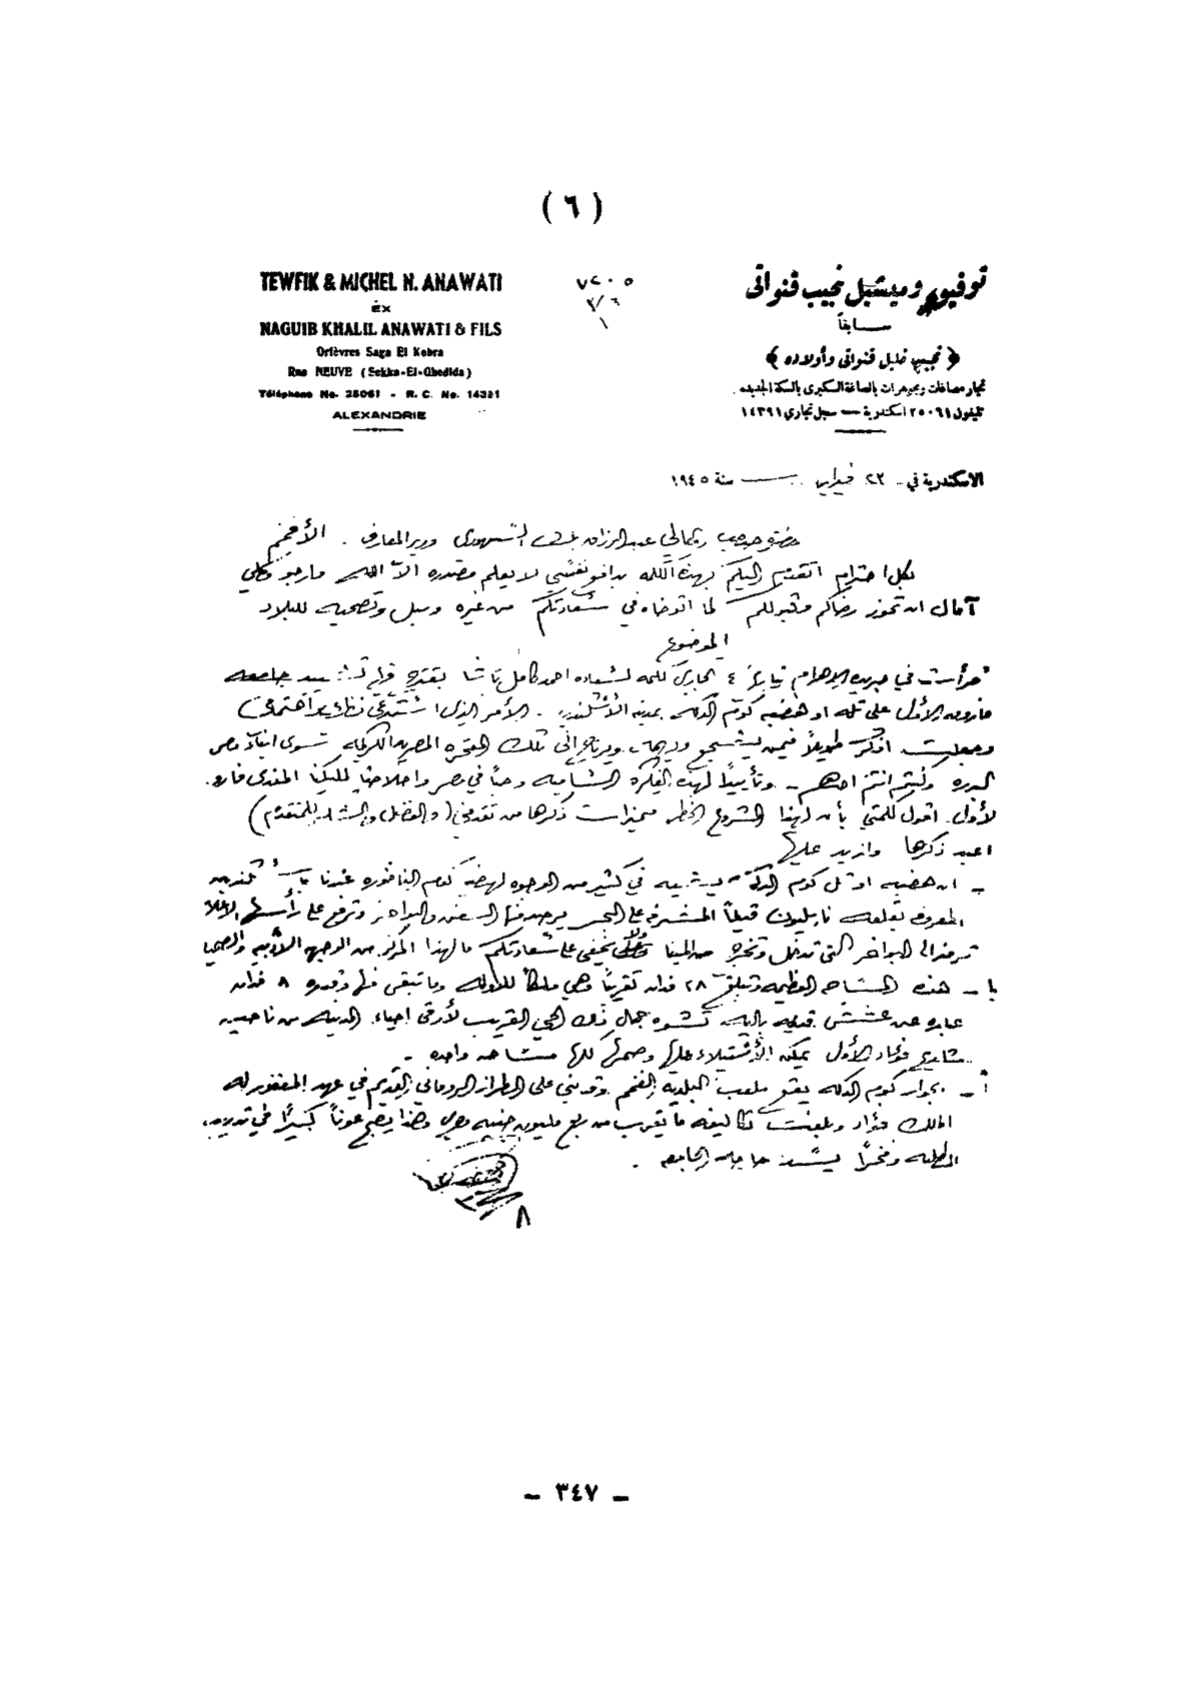 ( ٦ )
TEWFIK & MICHEL N. ANAWATI
ex
NAGUIB KHALIL ANAWATI & FILS
Orfèvres Saga El Kobra
Rue NEUVE (Sekka-El-Guedida)
Téléphone No. 25061 - R. C. No. 14321
ALEXANDRIE
٧٢٠٥
٢/٦
١
توفيق وميشيل نجيب قنواتى
سابقاً
﴿ نجيب خليل قنواتى وأولاده ﴾
تجار مصاغات ومجوهرات بالصاغة الكبرى بالسكة الجديدة
تليفون ٢٥٠٦١ اسكندرية — سجل تجارى ١٤٣٩١
الاسكندرية في - ٢٣ فبراير سنة ١٩٤٥
حضرة صاحب المعالي عبد الرزاق بك السنهوري وزير المعارف . الأفخم
بكل احترام اتقدم إليكم بهذه الكلمة بدافع نفسي لا يعلم مصدره الا الله وارجو وكلي
آمال ان تحوز رضاكم وقبولكم لما اتوخاه في سعادتكم من غيره وتضحيه للبلاد
الموضوع
قرأت في جريدة الاهرام ٤ الجاري كلمة لسعادة احمد كامل باشا يقترح فيها تشييد جامعه
فاروق الأول على تله او هضبه كوم الدكه بمدينة الأسكندريه . الأمر الذي استدعى نظري واهتمامي
وجعلت افكر طويلاً فيمن يشجع ويرتاح الى تلك الفكره المصريه الكريمه سوى ابناء مصر
البرره وكنتم انتم احدهم - وتأييداً لهذه الفكره الساميه وحباً في مصر واخلاصاً لمليكنا المفدى فاروق
الأول . اقول كلمتي بأن لهذا المشروع الخطير مميزات ذكرها من تقدمني ( والفضل للمتقدم )
اعيد ذكرها وازيد عليها
- ان هضبه او تل كوم الدكه شبيه في كثير من الوجوه لهضبه كوم الناضوره عندنا بأسكندريه
المعروف بقلعه نابليون قديماً المشرفه على البحر يرصد منها السفن والبواخر وترفع على رأسها الاعلام
ترمز الى البواخر التي تدخل وتخرج من المينا ولا يخفى على سعادتكم ما لهذا المركز من الوجهه الأدبيه والصحيه
ب - هذه المساحه العظيمه وتبلغ ٢٨ فدان تقريباً وهي ملكاً للدوله وما تبقى منها وقدره ٨ فدان
عباره عن عشش قديمه باليه تشوه جمال ذلك الحي القريب لأرقى احياء المدينه من ناحيه
شارع فؤاد الأول يمكن الأستيلاء عليها وضمها كلها مساحه واحده -
أ - بجوار كوم الدكه يقع ملعب البلديه الفخم وقد بني على الطراز الروماني القديم في عهد المغفور له
الملك فؤاد وبلغت تكاليفه ما يقرب من ربع مليون جنيه مصري وهذا يصبح عوناً كبيراً في تدريب
الطلبه وفخراً يسد حاجه الجامعه .
٨
- ٣٤٧ -